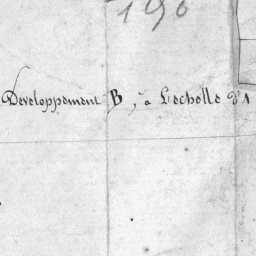 190
Developpement B, a Lechelle d'1